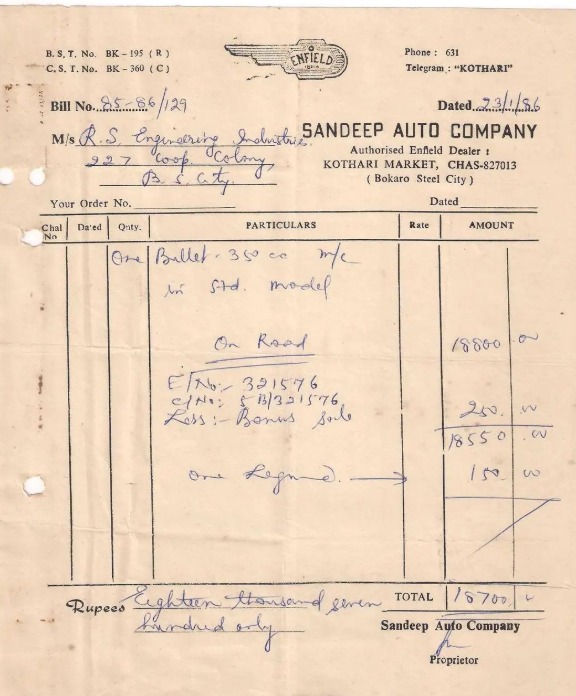 B. S. T. No. BK – 195 ( R )
C. S. T. No. BK – 360 ( C )
ENFIELD
INDIA
Phone : 631
Telegram : "KOTHARI"
Bill No. 85-86/129
Dated 23/1/86
M/s R. S. Engineering Industries.
227 Coop. Colony,
B. S. City.
SANDEEP AUTO COMPANY
Authorised Enfield Dealer :
KOTHARI MARKET, CHAS-827013
( Bokaro Steel City )
Your Order No.
Dated
Chal No Dated Qnty. PARTICULARS Rate AMOUNT
One Bullet - 350 cc m/c
in Std. model
On Road 18800 00
E/No:- 321576
C/No: 5 B/321576
Less:- Bonus sale 250. 00
18550 .00
one → 150. 00
Rupees Eighteen thousand seven TOTAL 18700
hundred only
Sandeep Auto Company
Proprietor